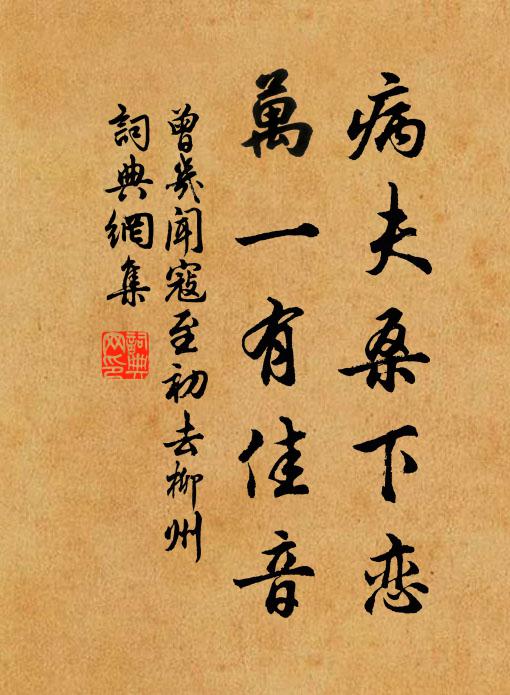 病夫桑下恋
萬一有佳音
曾幾聞寇至初去柳州
詞典網集
詞典
网印